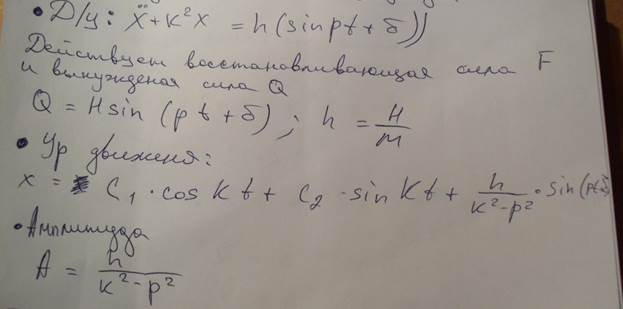 • Д/у: ẍ + k²x = h(sin pt + δ))
Действует восстанавливающая сила F
и вынужденая сила Q
Q = H sin (pt + δ) ; h = H/m
• Ур движеня:
x = C₁ · cos kt + C₂ · sin kt + h/(k² - p²) · sin(pt
• Амплитуда
A = h/(k² - p²)